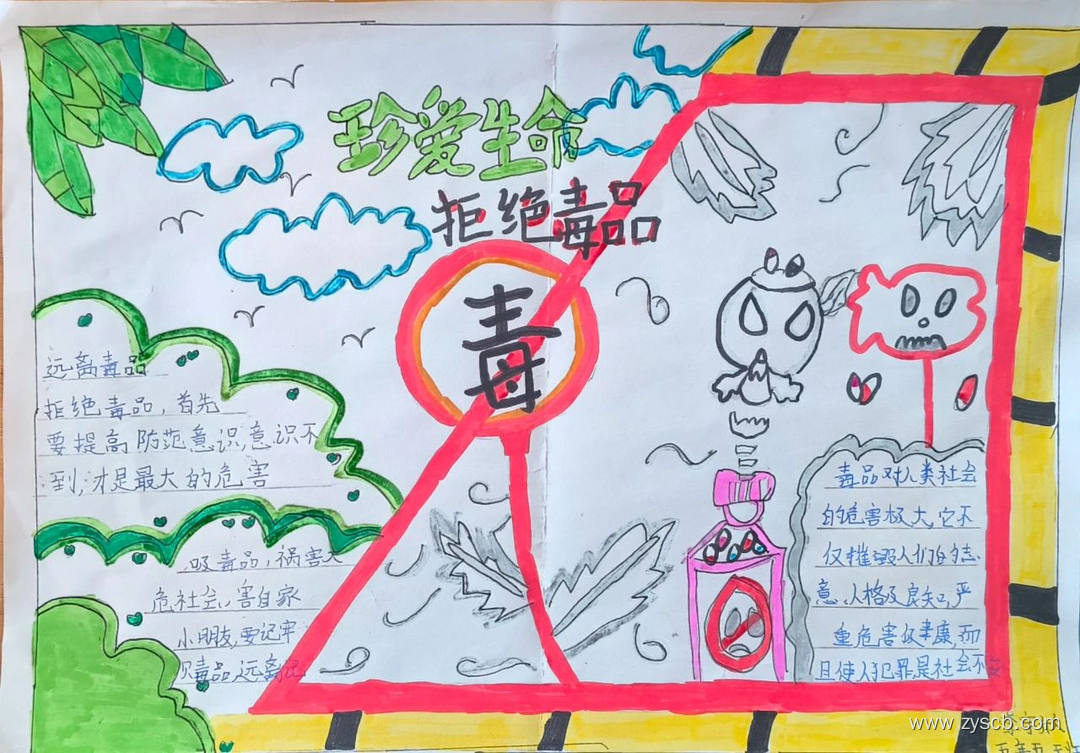 珍爱生命
拒绝毒品
毒
远离毒品
拒绝毒品,首先
要提高防范意识,意识不
到,才是最大的危害
吸毒品,祸害大
危社会,害自家
小朋友,要记牢
毒品,远离
毒品对人类社会
的危害极大,它不
仅摧毁人们的
意,人格及良知,严
重危害健康,而
且使人犯罪,是社会不
www.zyscb.com